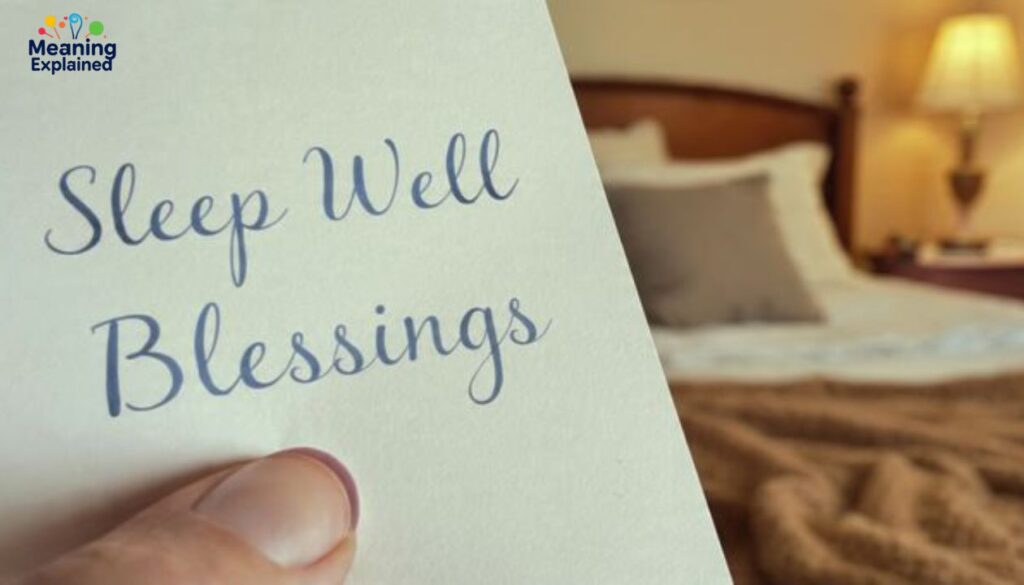 Meaning
Explained
Sleep Well
Blessings